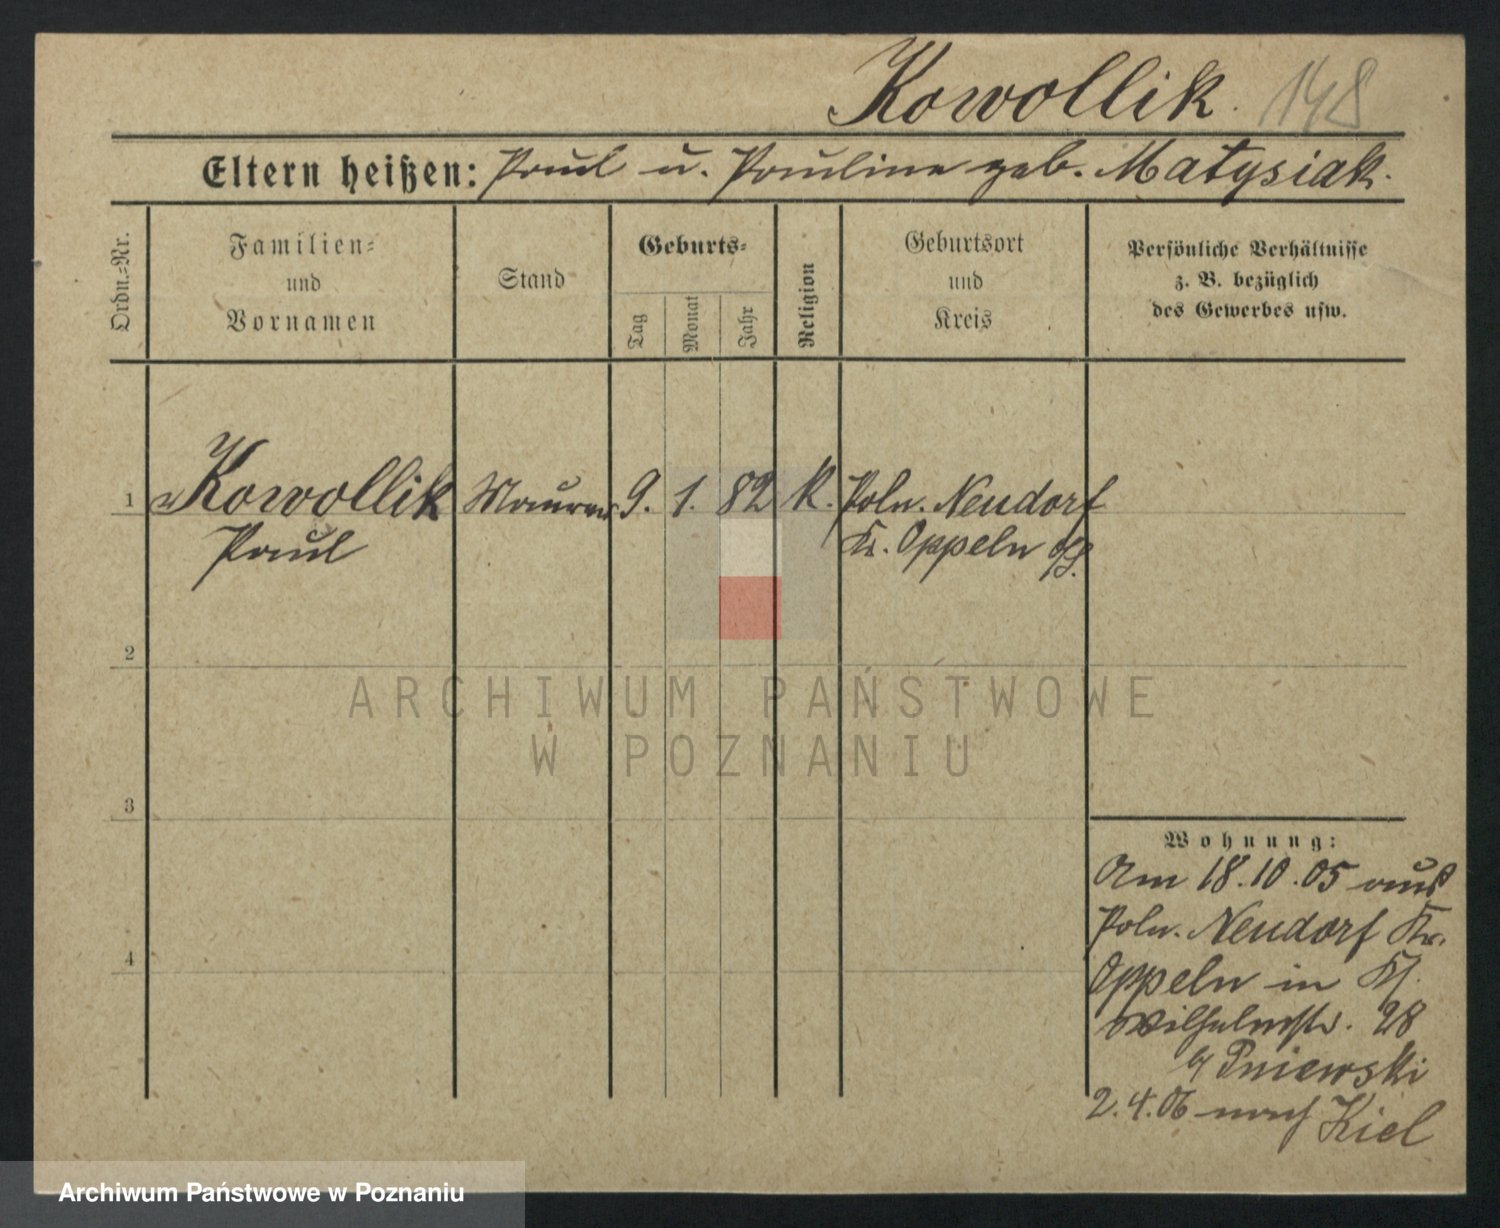 Kowollik. 148
Eltern heißen: Paul u. Pauline geb. Matysiak.
Ordn.-Nr.
Familien-
und
Vornamen
Stand
Geburts-
Tag
Monat
Jahr
Religion
Geburtsort
und
Kreis
Persönliche Verhältnisse
z. B. bezüglich
des Gewerbes usw.
1 Kowollik Maurer 9. 1. 82 K. Poln. Neudorf
Paul Kr. Oppeln O/S.
2
3
4
ARCHIWUM PAŃSTWOWE
W POZNANIU
Wohnung:
Am 18.10.05 aus
Poln. Neudorf Kr.
Oppeln in
Wilhelmstr. 28
Pniewski
2.4.06 nach Kiel
Archiwum Państwowe w Poznaniu